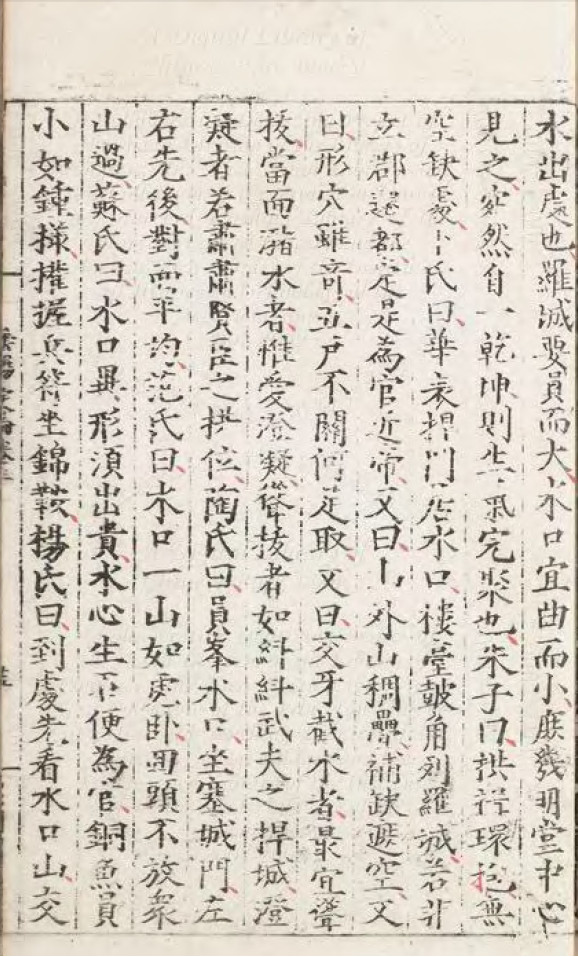 水出處也羅城要員而大水口宜曲而小庶幾明堂中心
見之宛然自一乾坤則生氣完聚也朱子曰拱揖環抱無
空缺處卜氏曰華表捍門居水口樓臺鼓角列羅城若非
立郡遷都定是為官近帝又曰山外山稠疊補缺遮空又
曰形穴雖奇五戶不關何足取又曰交牙截水者最宜聳
拔當面瀦水者惟愛澄凝聳拔者如糾糾武夫之捍城澄
凝者若肅肅賢臣之拱位陶氏曰員峯水口坐塞城門左
右先後對面平均范氏曰水口一山如虎卧回頭不放衆
山過蘇氏曰水口異形須出貴水心生石便為官銅魚員
小如鍾様權握兵符坐錦鞍楊氏曰到處先看水口山交